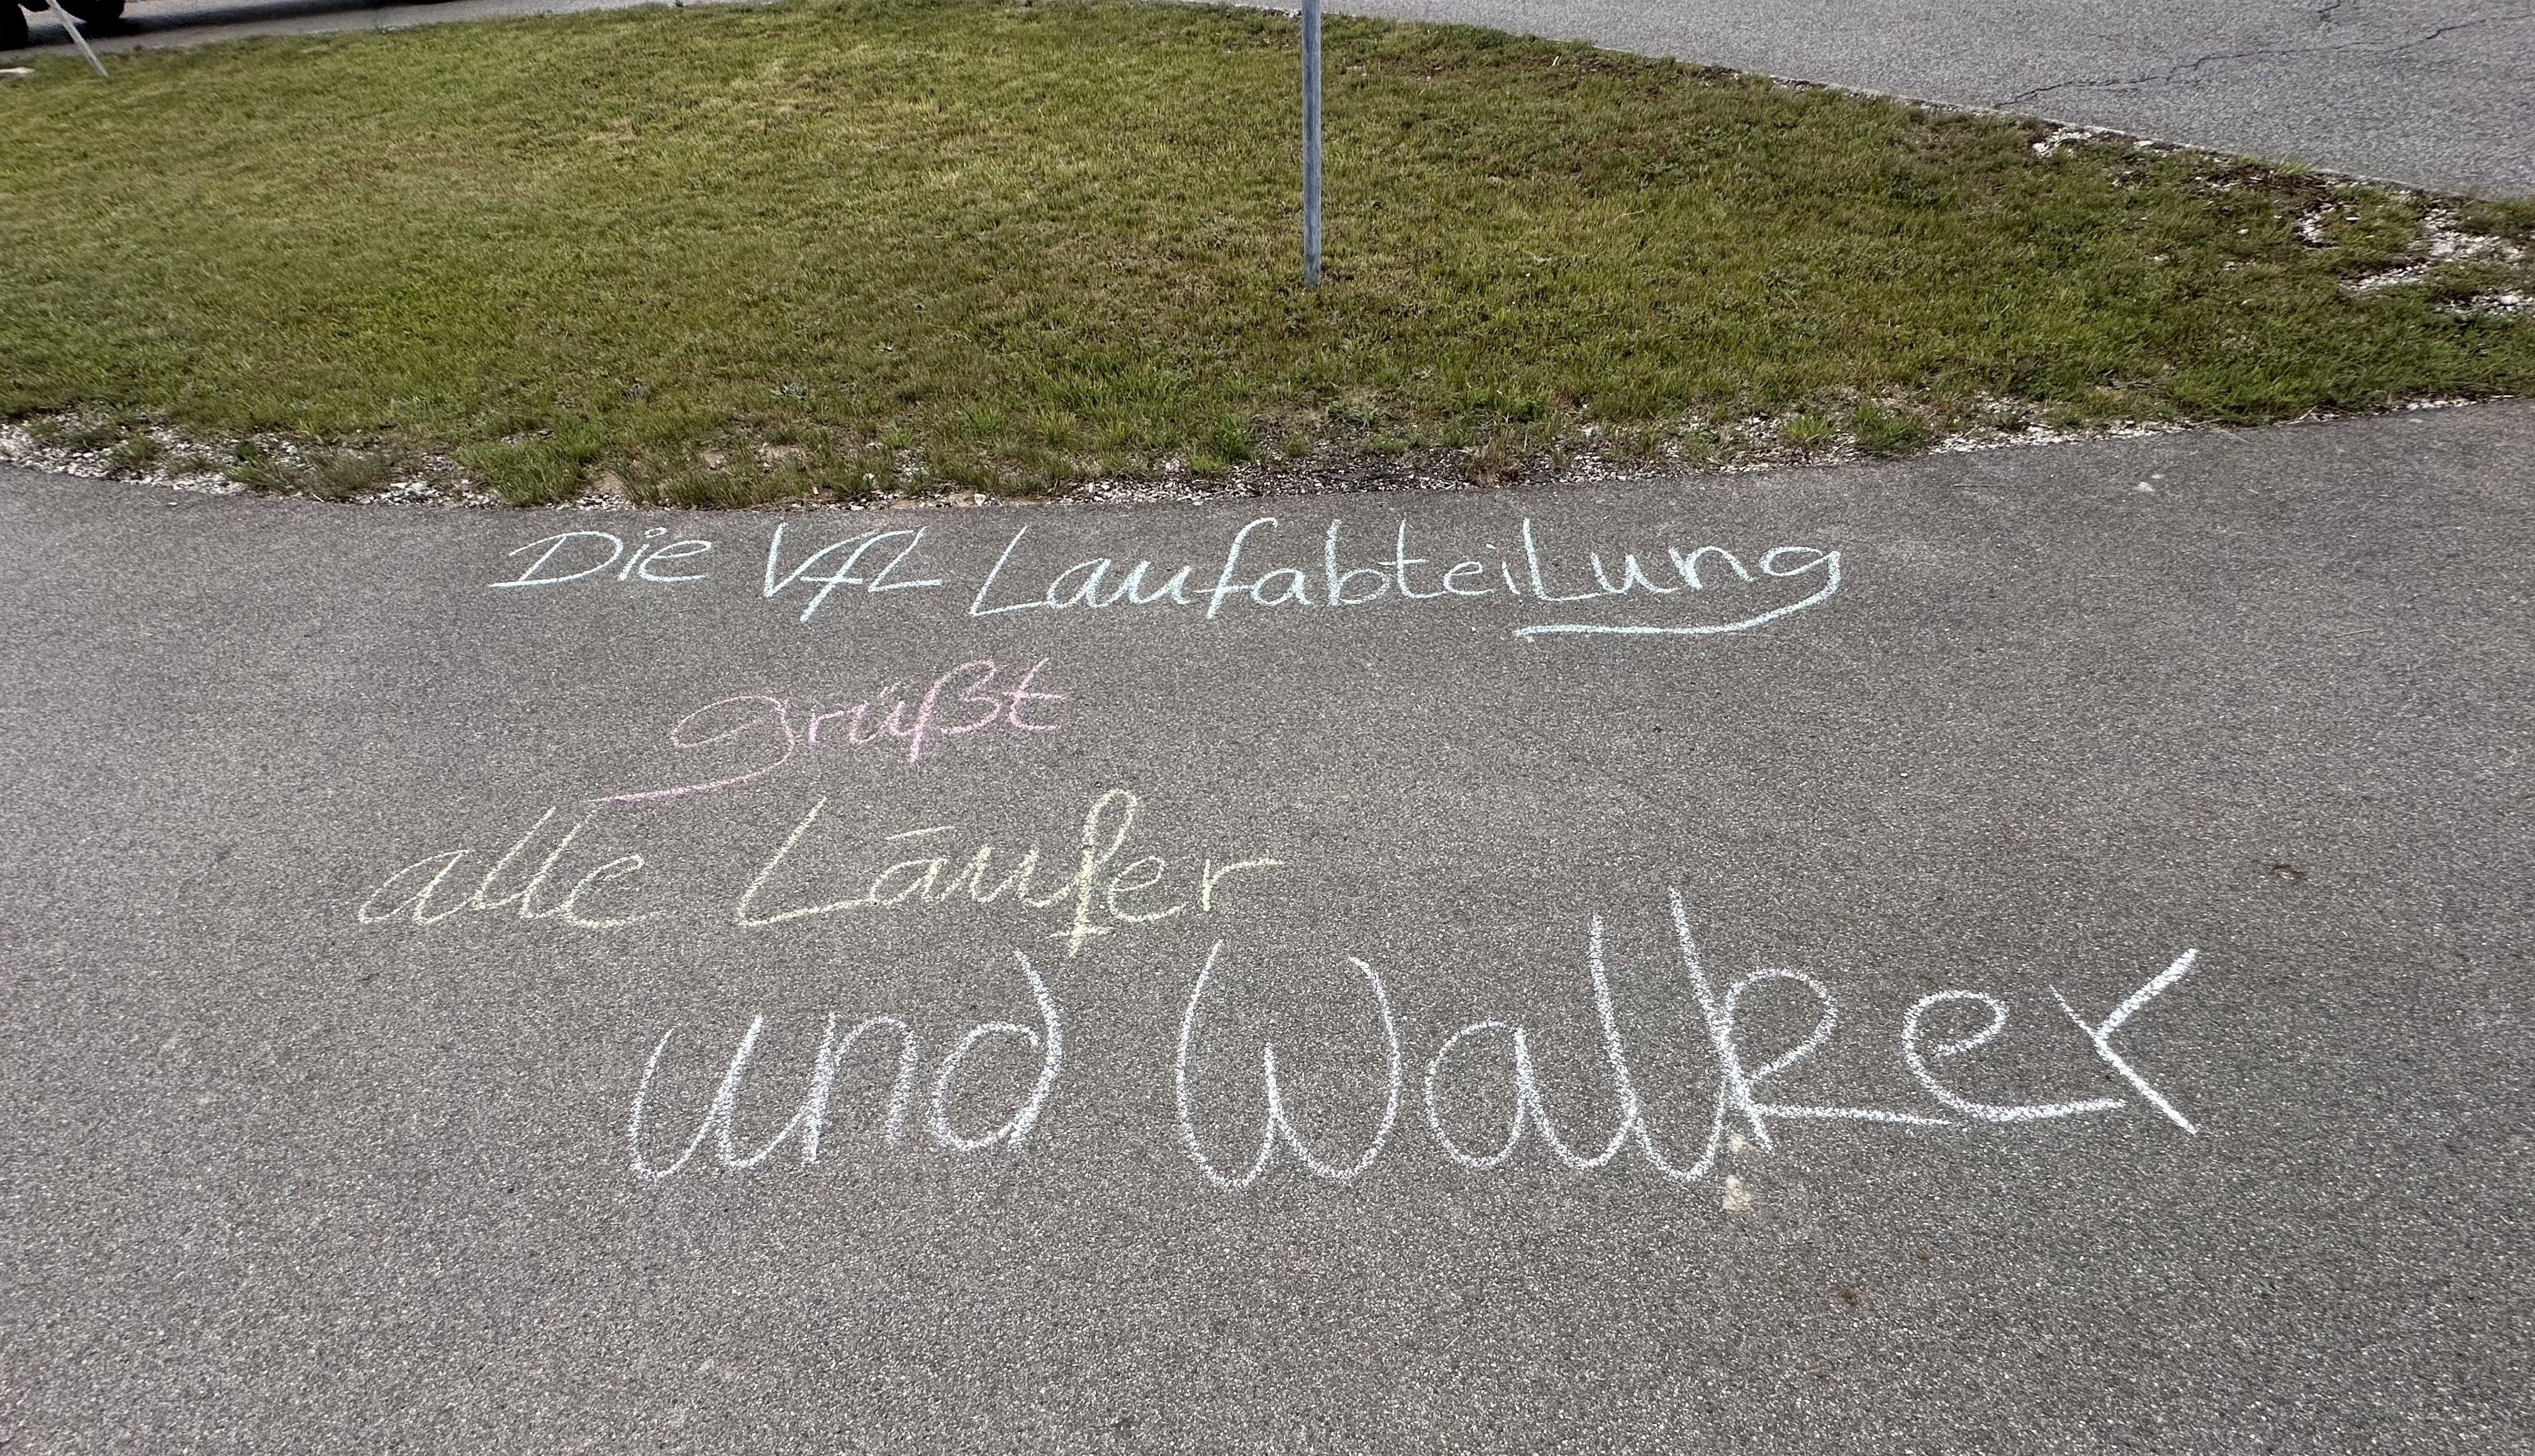 Die VfL Laufabteilung
grüßt
alle Läufer
und Walker